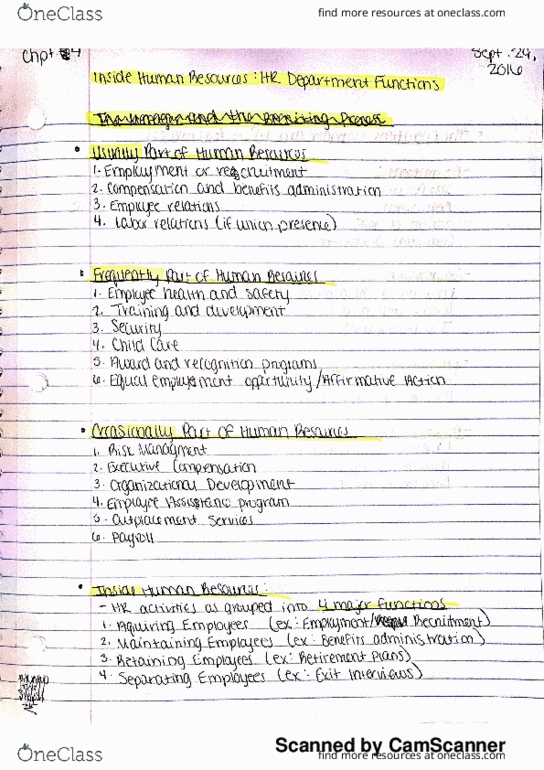 OneClass
find more resources at oneclass.com
Chpt 4
Sept. 24, 2016
Inside Human Resources: HR Department Functions
The Manager and the Recruiting Process
• Usually Part of Human Resources
1. Employment or recruitment
2. Compensation and benefits administration
3. Employee relations
4. Labor relations (if union presence)
• Frequently Part of Human Resources
1. Employee health and safety
2. Training and development
3. Security
4. Child Care
5. Award and recognition programs
6. Equal employement opportunity/Affirmative Action
• Occasionally Part of Human Resources
1. Risk Managment
2. Executive Compensation
3. Organizational Development
4. Employee Assistance program
5. Outplacement Services
6. Payroll
• Inside Human Resources:
- HR activities as grouped into 4 major functions
1. Aquiring Employees (ex: Employment/Recruitment)
2. Maintaining Employees (ex: Benefits administration)
3. Retaining Employees (ex: Retirement Plans)
4. Separating Employees (ex: Exit Interviews)
Scanned by CamScanner
OneClass
find more resources at oneclass.com